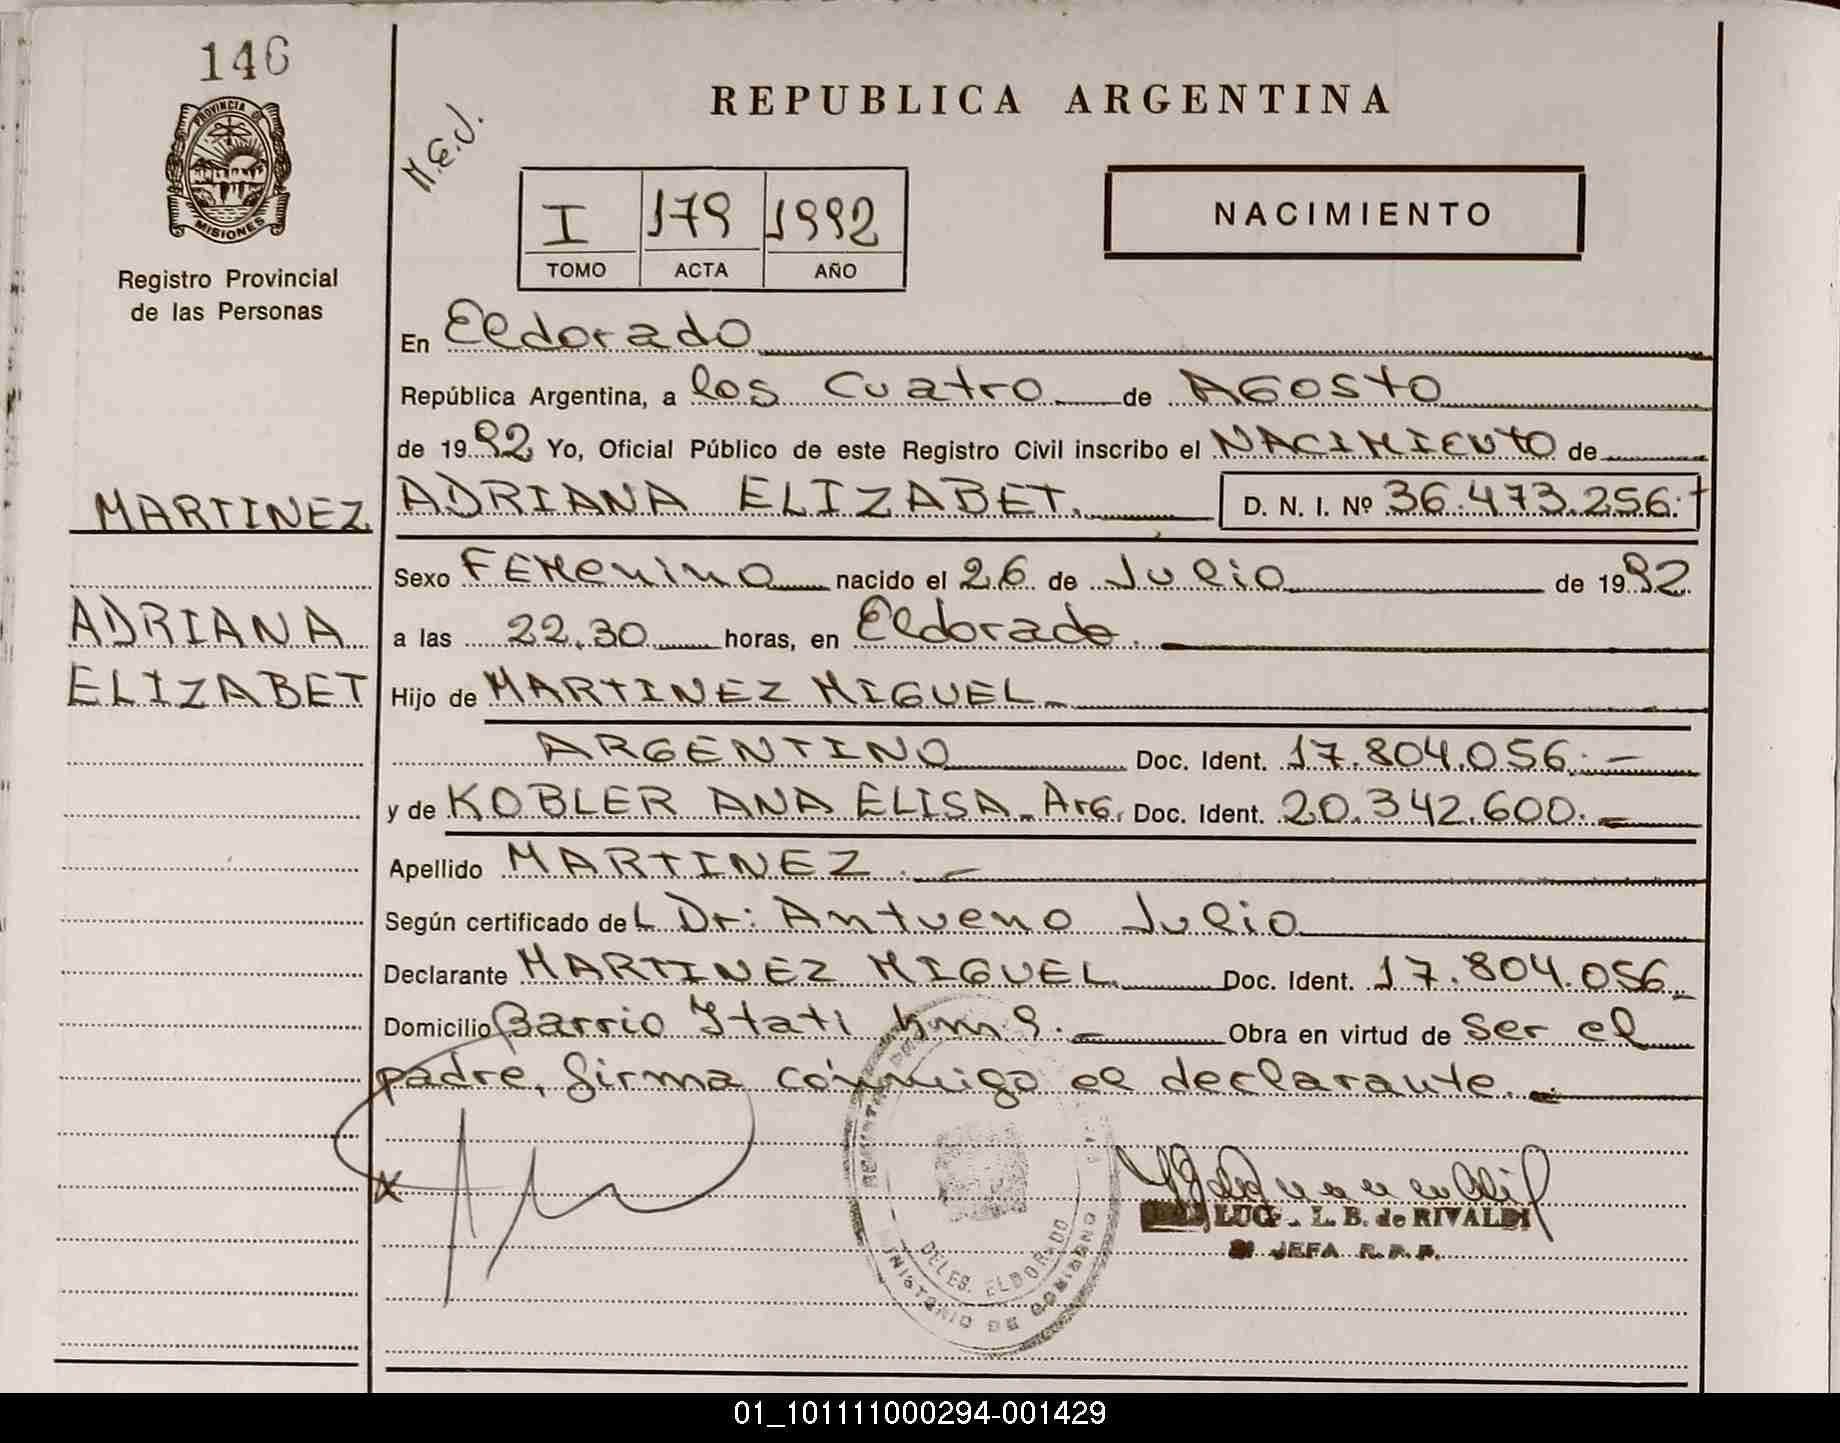 146
PROVINCIA DE
MISIONES
Registro Provincial
de las Personas
M.E.J.
REPUBLICA ARGENTINA
I 179 1992
TOMO ACTA AÑO
NACIMIENTO
En Eldorado
República Argentina, a los cuatro de AGOSTO
de 1992 Yo, Oficial Público de este Registro Civil inscribo el NACIMIENTO de
MARTINEZ ADRIANA ELIZABET. D. N. I. Nº 36.473.256.
Sexo FEMENINO nacido el 26 de Julio de 1992
ADRIANA a las 22.30 horas, en Eldorado.
ELIZABET Hijo de MARTINEZ MIGUEL
ARGENTINO Doc. Ident. 17.804.056.
y de KOBLER ANA ELISA. Arg. Doc. Ident. 20.342.600.
Apellido MARTINEZ.
Según certificado del Dr: Antueno Julio
Declarante MARTINEZ MIGUEL Doc. Ident. 17.804.056
Domicilio Barrio Itati km 9. Obra en virtud de ser el
padre, firma conmigo el declarante.
X
LUC L. B. de RIVALDI
JEFA R.P.P.
DELEG. ELDORADO
MINISTERIO DE GOBIERNO
01_101111000294-001429